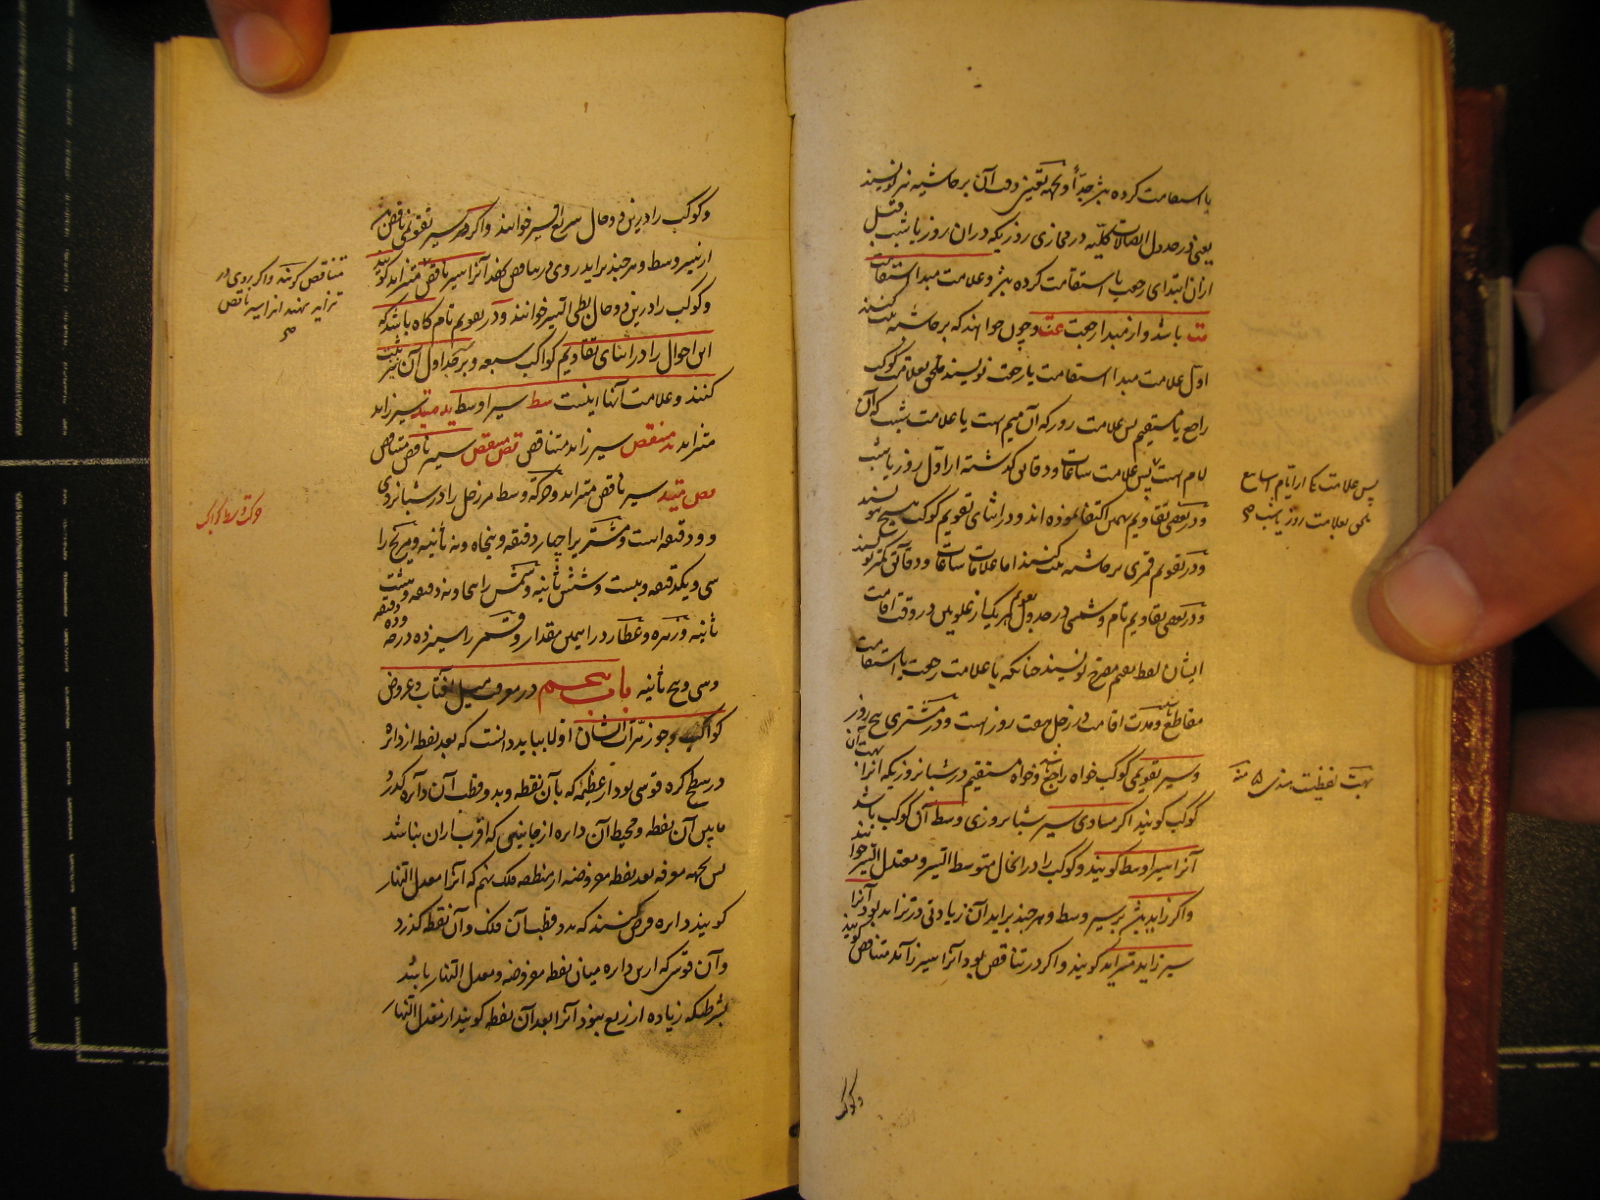 یا استقامت کرده بشر جدا و بجهة تعیین وقت آن بر حاشیه نیز نویسند
یعنی در جدول اتصالات کلیه در محاذی روزیکه در ان روز یا شب قبل
از ان ابتدای رجعت یا استقامت کرده بشر و علامت مبدا استقامت
مت باشد و از مبدا رجعت عت و چون خواهند که بر حاشیه ثبت کنند
اول علامت مبدا استقامت یا رجعت نویسند ملحق بعلامت کوکب
راجع یا مستقیم پس علامت روز که آن میم است یا علامت شب که آن
لام است پس علامت ساعات و دقایق گذشته از اول روز یا شب
و در بعضی تقاویم بهمین اکتفا نموده اند و در اثنای تقویم کوکب هیچ ننویسند
و در تقویم قمری بر حاشیه ثبت کنند اما علامات ساعات و دقایق کمتر نویسند
و در بعضی تقاویم تام و شمسی در جدول تقویم هر یک از علویین در وقت اقامت
ایشان لفظ مقیم مصرح نویسند چنانکه با علامت رجعت یا استقامت
مقاطع باشد و مدت اقامت در زحل هفت روز است و در مشتری پنج روز
و سیر تقویمی کوکب خواه راجع باشد و خواه مستقیم در شبانروزیکه آنرا بهت آن
کوکب کویند اکر مساوی سیر شبانروزی وسط آن کوکب باشد
آنرا سیر اوسط کویند و کوکب را در انحال متوسط السیر و معتدل السیر خوانند
و اکر زاید بشر بر سیر وسط و هر چند برآید آن زیادتی در تزاید بود آنرا
سیر زاید متزاید کویند و اکر در تناقص بود آنرا سیر زائد متناقص کویند
پس علامت یک از ایام اسابیع
یعنی بعلامت روز یا شب صح
بهت لفظیست هندی ۵ منه
و کوکب
و کوکب را درین دو حال سریع السیر خوانند و اکر سیر تقویمی ناقص بشر
از سیر وسط و هر چند برآید روی در تناقص نهد آنرا سیر ناقص متزاید کویند
و کوکب را درین دو حال بطی السیر خوانند و در تقویم تام کاه باشد که
این احوال را در اثنای تقاویم کواکب سبعه و بر جداول آن نیز ثبت
کنند و علامت آنها اینست سط سیر اوسط ید متید سیر زاید
متزاید ید منقص سیر زاید متناقص قص منقص سیر ناقص متناقص
قص متید سیر ناقص متزاید و حرکة وسط مر زحل را در شبانروزی
دو دقیقه است و مشتری را چهار دقیقه و پنجاه و نه ثانیه و مریخ را
سی و یکدقیقه و بیست و شش ثانیه و شمس را پنجاه و نه دقیقه و هشت
ثانیه و زهره و عطارد را بهمین مقدار و قمر را سیزده درجه و ده دقیقه
و سی و پنج ثانیه باب پنجم در معرفت میل آفتاب و عروض
کواکب و جوزهرات ایشان اولا بباید دانست که بعد نقطه از دایره
در سطح کره قوسی بود از عظیمه که بآن نقطه و بدو قطب آن دایره کذرد
مابین آن نقطه و محیط آن دایره از جانبی که اقرب از ان نباشد
پس بجهة معرفة بعد نقطه مفروضه از منطقه فلک نهم که آنرا معدل النهار
کویند دایره فرض کنند که بدو قطب آن فلک و آن نقطه کذرد
و آن قوس که ازین دایره میان نقطه مفروضه و معدل النهار باشد
بشرطیکه زیاده از ربع نبود آنرا بعد آن نقطه کویند از معدل النهار
متناقص کویند و اکر روی در
تزاید نهند انرا سیر ناقص
صح
حرکت وسط کواکب